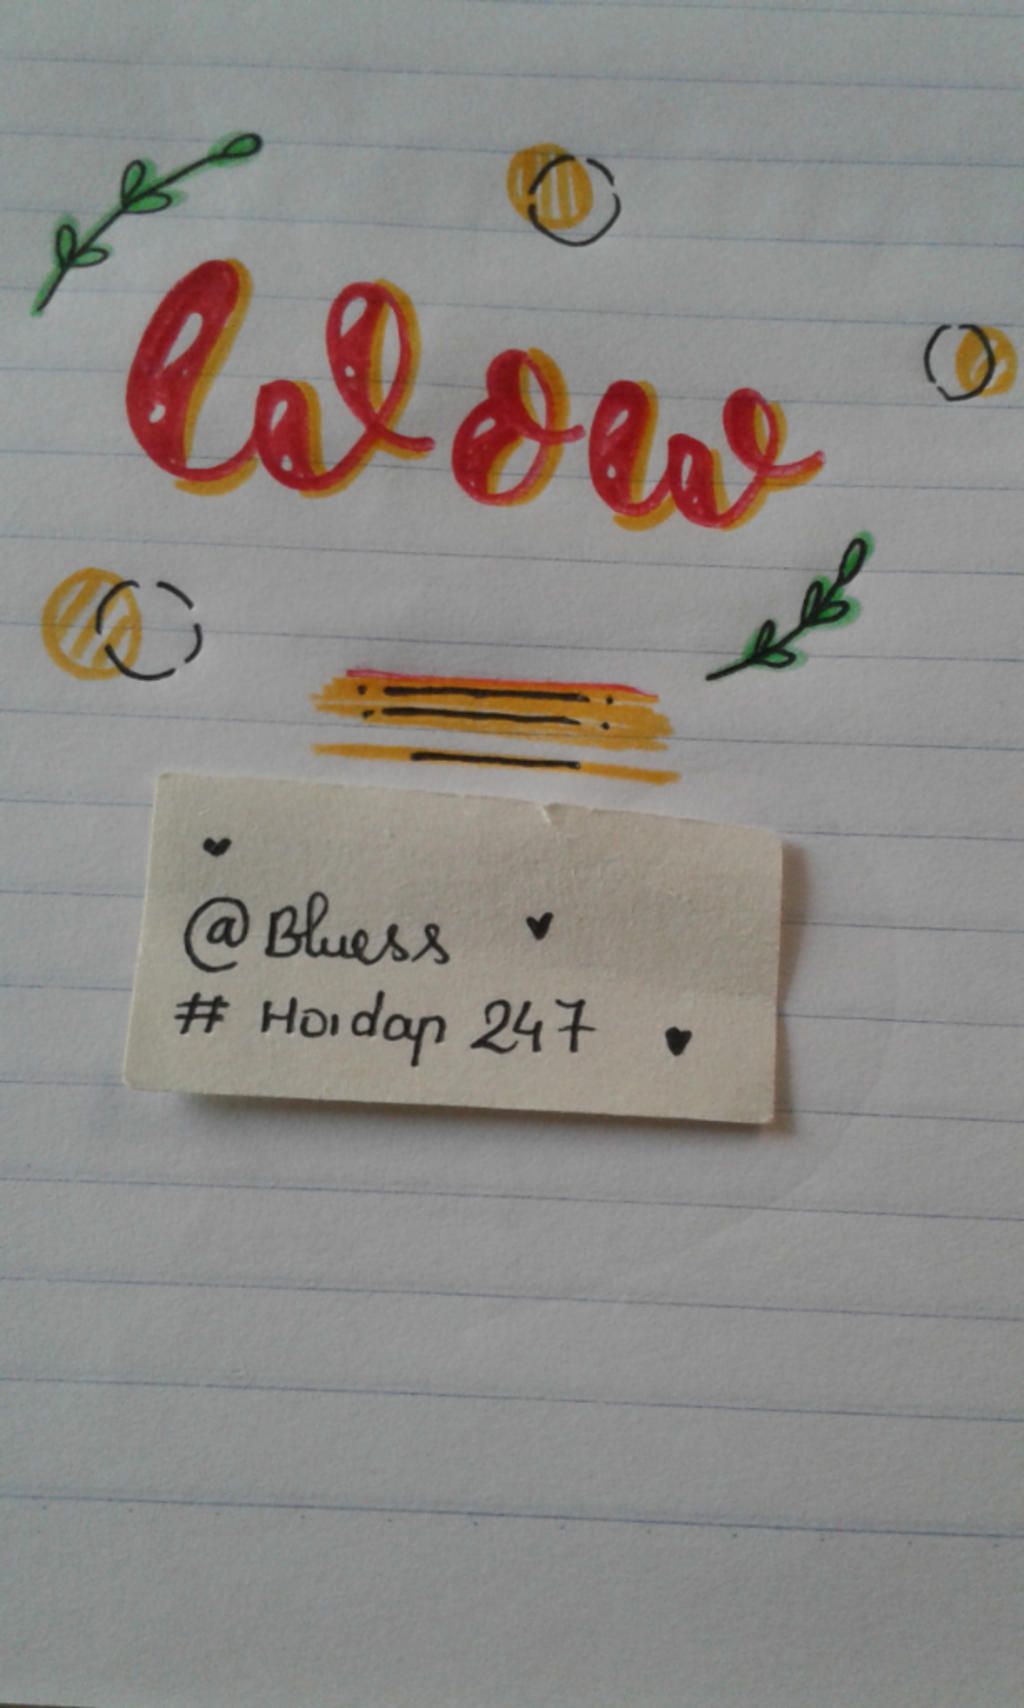 Wow
@Bluess
# Hoidap 247